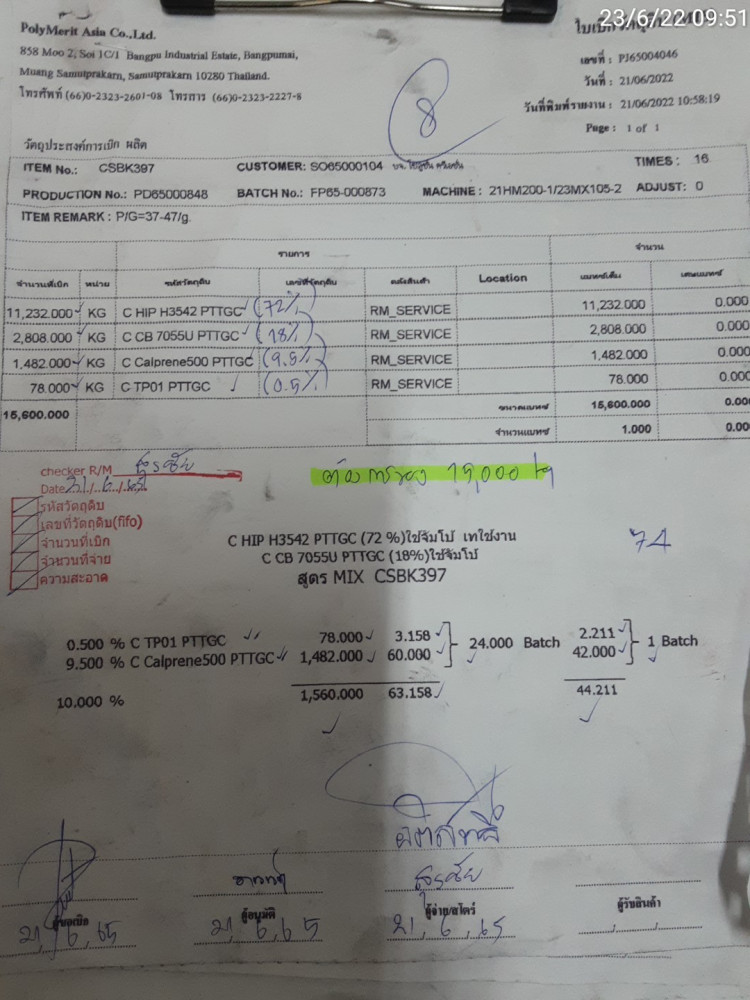 23/6/22 09:51
PolyMerit Asia Co.,Ltd.
858 Moo 2, Soi 1C/1 Bangpu Industrial Estate, Bangpumai,
Muang Samutprakarn, Samutprakarn 10280 Thailand.
โทรศัพท์ (66)0-2323-2601-08 โทรสาร (66)0-2323-2227-8
เลขที่ : PJ65004046
วันที่ : 21/06/2022
วันที่พิมพ์รายงาน : 21/06/2022 10:58:19
Page : 1 of 1
8
วัตถุประสงค์การเบิก ผลิต
ITEM No.: CSBK397 CUSTOMER: SO65000104 TIMES : 16
PRODUCTION No.: PD65000848 BATCH No.: FP65-000873 MACHINE : 21HM200-1/23MX105-2 ADJUST: 0
ITEM REMARK : P/G=37-47/g.
รายการ จำนวน
จำนวนที่เบิก หน่วย รหัสวัตถุดิบ เลขที่วัตถุดิบ คลังสินค้า Location แบทช์เต็ม เศษแบทช์
11,232.000 KG C HIP H3542 PTTGC (72%) RM_SERVICE 11,232.000 0.000
2,808.000 KG C CB 7055U PTTGC (18%) RM_SERVICE 2,808.000 0.000
1,482.000 KG C Calprene500 PTTGC (9.5%) RM_SERVICE 1,482.000 0.000
78.000 KG C TP01 PTTGC (0.5%) RM_SERVICE 78.000 0.000
15,600.000 ขนาดแบทช์ 15,600.000 0.000
จำนวนแบทช์ 1.000 0.00
checker R/M สุรชัย
Date 21/6/65
ต้องการของ 15,000 kg
รหัสวัตถุดิบ
เลขที่วัตถุดิบ(fifo)
จำนวนที่เบิก
จำนวนที่จ่าย
ความสะอาด
C HIP H3542 PTTGC (72 %)ใช้จัมโบ้ เทใช้งาน
C CB 7055U PTTGC (18%)ใช้จัมโบ้
สูตร MIX CSBK397
74
0.500 % C TP01 PTTGC 78.000 3.158 2.211
9.500 % C Calprene500 PTTGC 1,482.000 60.000 24.000 Batch 42.000 1 Batch
10.000 % 1,560.000 63.158 44.211
สุรชัย
ผู้ขอเบิก ผู้อนุมัติ ผู้จ่าย/สโตร์ ผู้รับสินค้า
21, 6, 65 21, 6, 65 21, 6, 65